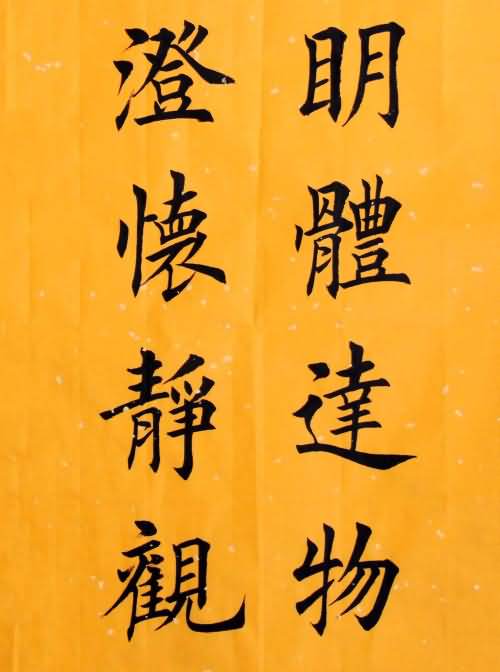 明體達物
澄懷靜觀